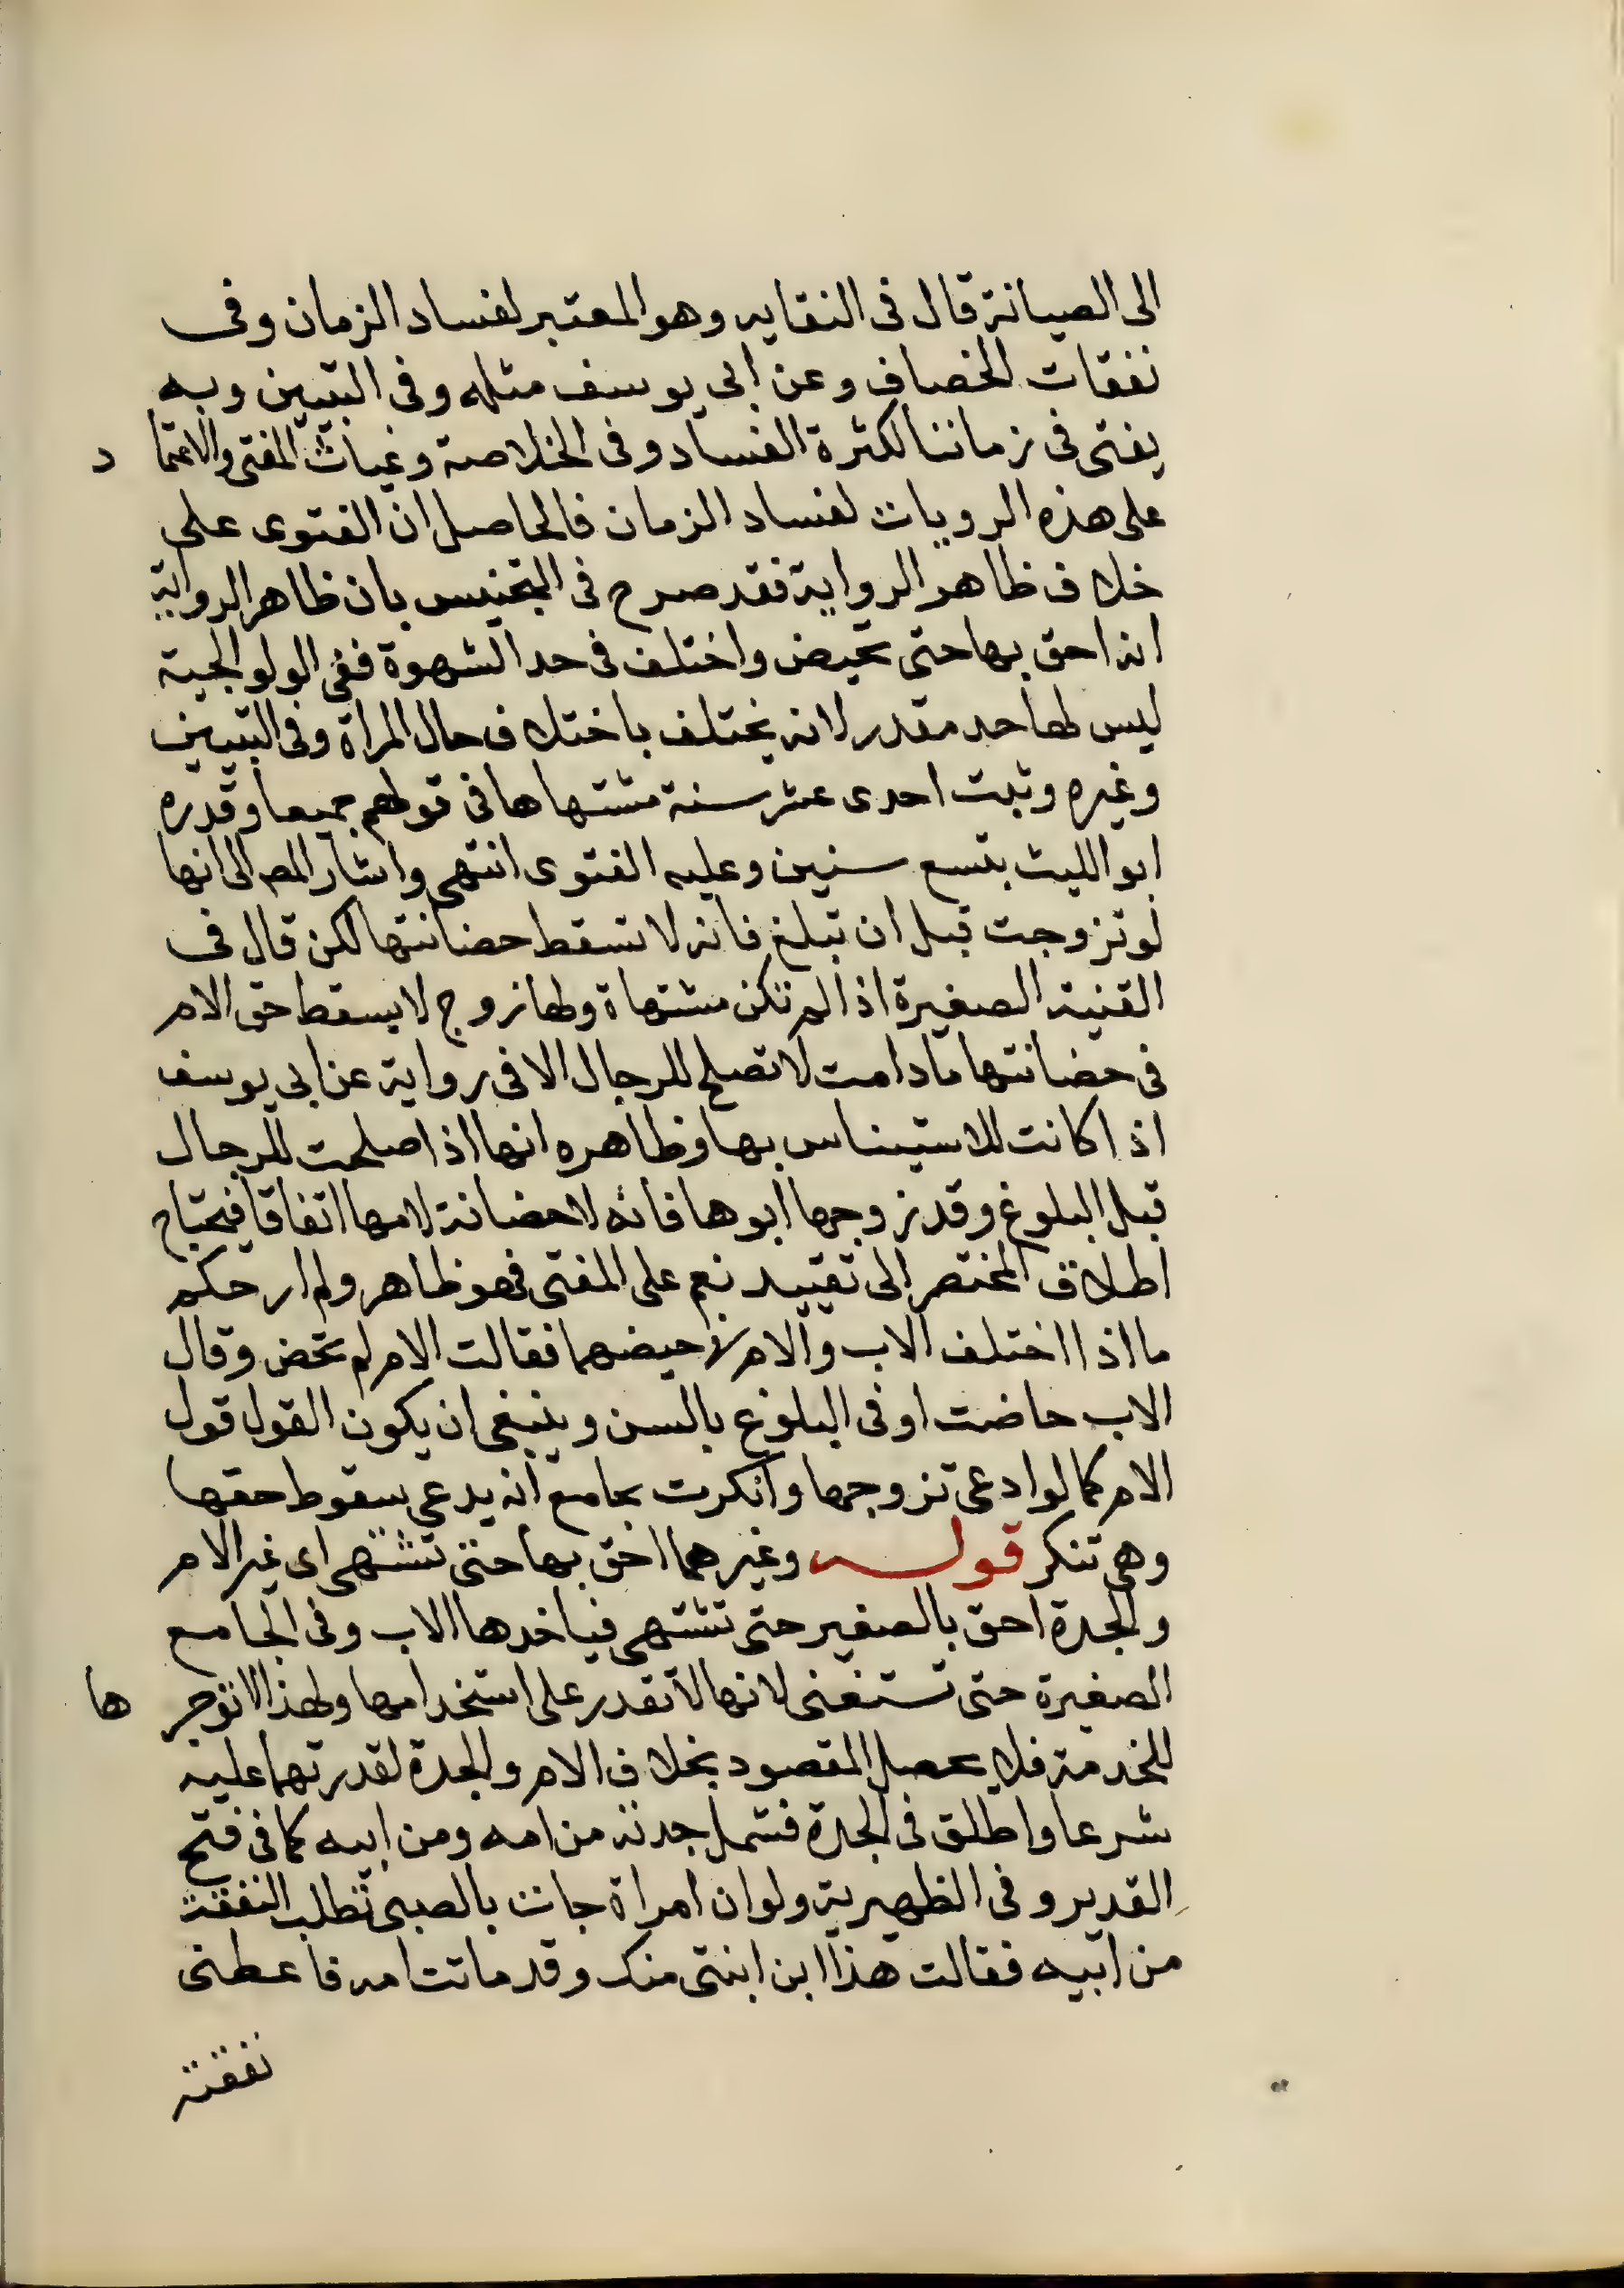 الى الصيانة قال فى النقايه وهو المعتبر لفساد الزمان وفى
نفقات الخصاف وعن ابى يوسف مثله وفى التبيين وبه
يفتى فى زماننا لكثرة الفساد وفى الخلاصة وغياث المفتى والاعتماد
على هذه الرويات لفساد الزمان فالحاصل ان الفتوى على
خلاف ظاهر الرواية فقد صرح فى التجنيس بان ظاهر الرواية
انه احق بها حتى تحيض واختلف فى حد الشهوة ففى الولوالجية
ليس لها حد مقدر لانه يختلف باختلاف حال المراة وفى التبيين
وغيره وبنت احدى عشر سنة مشتهاها فى قولهم جميعا وقدره
ابو الليث بتسع سنين وعليه الفتوى انتهى واشار المص الى انها
لو تزوجت قبل ان تبلغ فانه لا تسقط حضانتها لكن قال فى
القنية الصغيرة اذا لم تكن مشتهاة ولها زوج لا يسقط حق الام
فى حضانتها مادامت لا تصلح للرجال الا فى رواية عن ابى يوسف
اذا كانت للاستيناس بها وظاهره انها اذا صلحت للرجال
قبل البلوغ وقد زوجها ابوها فانه لا حضانة لامها اتفاقا فيحتاج
اطلاق المختصر الى تقييد نعم على المفتى فهو ظاهر ولم ار حكم
ما اذا اختلف الاب والام فى حيضهما فقالت الام لم تحض وقال
الاب حاضت او فى البلوغ بالسن وينبغى ان يكون القول قول
الام كما لو ادعى تزوجها وانكرت بجامع انه يدعى سقوط حقها
وهى تنكر قوله وغيرهما احق بها حتى تشتهى اى غير الام
والجدة احق بالصغير حتى تشتهى فياخدها الاب وفى الجامع
الصغيرة حتى تستغنى لانها لا تقدر على استخدامها ولهذا لا تؤجرها
للخدمة فلا يحصل المقصود بخلاف الام والجدة لقدرتهما عليه
شرعا واطلق فى الجدة فشمل جدته من امه ومن ابيه كما فى فتح
القدير وفى الظهيرية ولو ان امراة جات بالصبى تطلب النفقة
من ابيه فقالت هذا ابن ابنتى منك وقد ماتت امه فاعطنى
نفقته